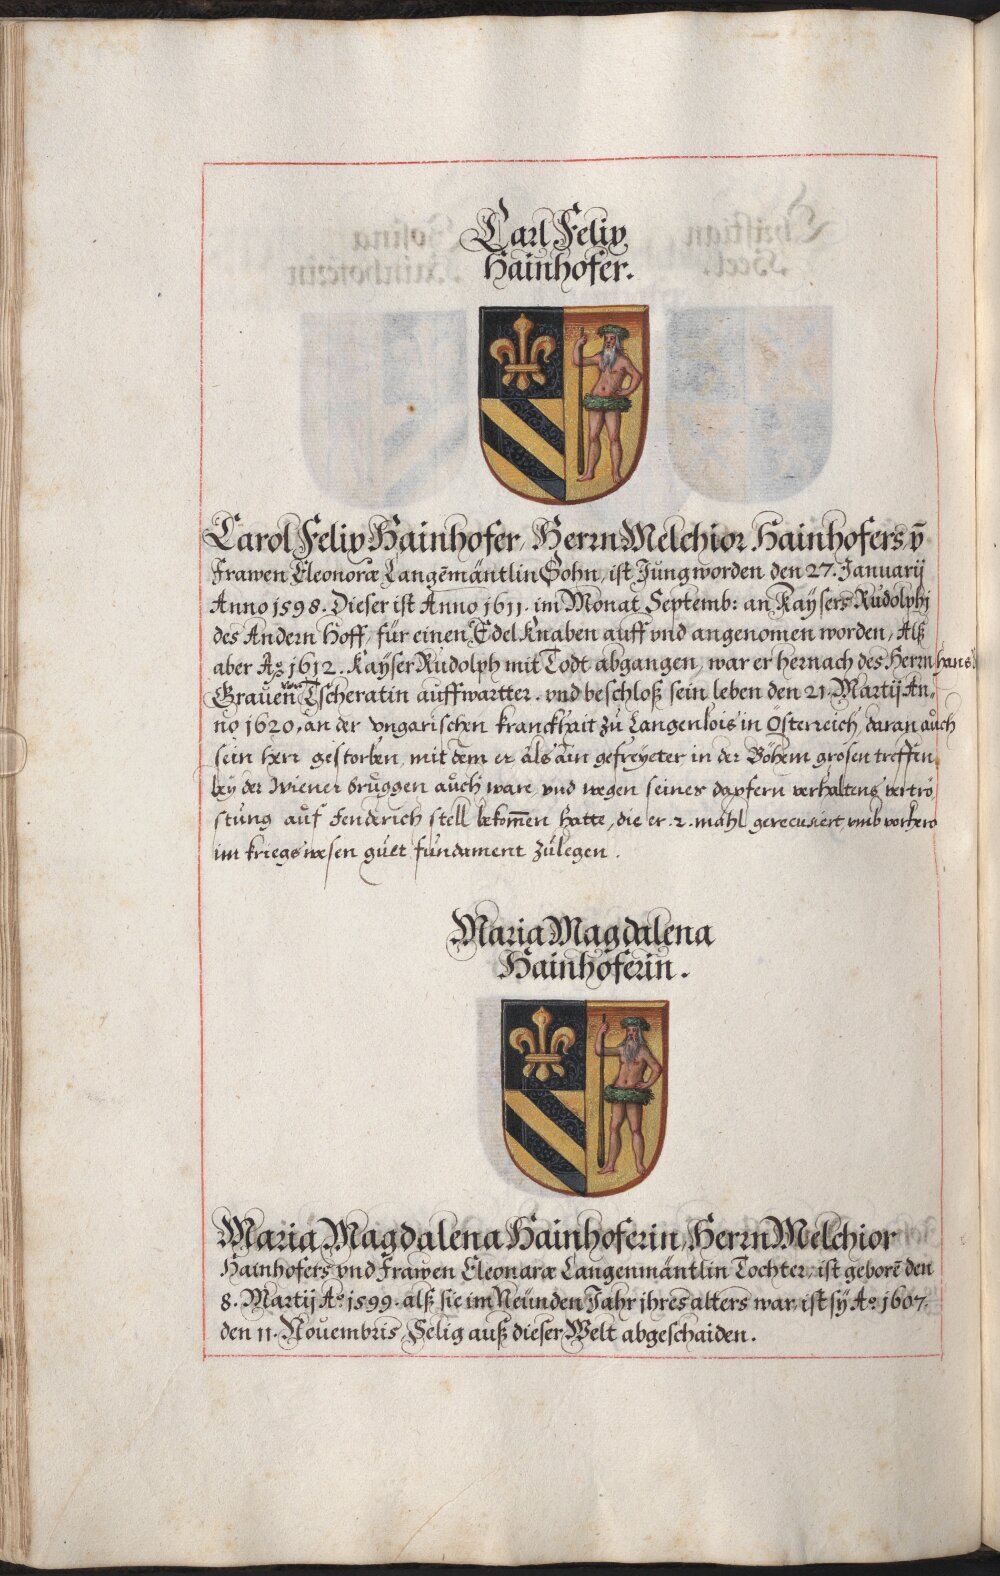 Carl Felix
Hainhofer.
Carol Felix Hainhofer, Herrn Melchior Hainhofers, vñ
Frawen Eleonoræ Langēmäntlin Sohn, ist Jung worden den 27. Januarij
Anno 1598. Dieser ist Anno 1611. im Monat Septemb: an Kaysers Rudolphi
des Andern Hoff, für einen Edel Knaben auff vnd angenomen worden, Alß
aber Aº 1612. Kayser Rudolph mit Todt abgangen, war er hernach des Herrn hans
Grauen von Tscheratin auffwartter. vnd beschloß sein leben den 21. Martij An-
no 1620. an der vngarischen kranckhait zu Langenlois in Österreich, daran auch
sein herr gestorben, mit dem er als ain gefreyeter in der Böhem grosen treffen
bey der Wiener bruggen auch ware, vnd wegen seines dapfern verhaltens vertrö,
stung auf fenderich stell bekom̄en hatte, die er .2. mahl gerecusiert, vmb vorhero
im kriegswesen guet fundament zulegen.
Maria Magdalena
Hainhoferin.
Maria Magdalena Hainhoferin, Herrn Melchior
Hainhofers vnd Frawen Eleonaræ Langenmäntlin Tochter, ist geborē den
8. Martij Aº 1599. alß sie im Neünden Jahr ihres alters war, ist sÿ Aº 1607.
den 11. Nouembris Selig auß dieser Welt abgeschaiden.